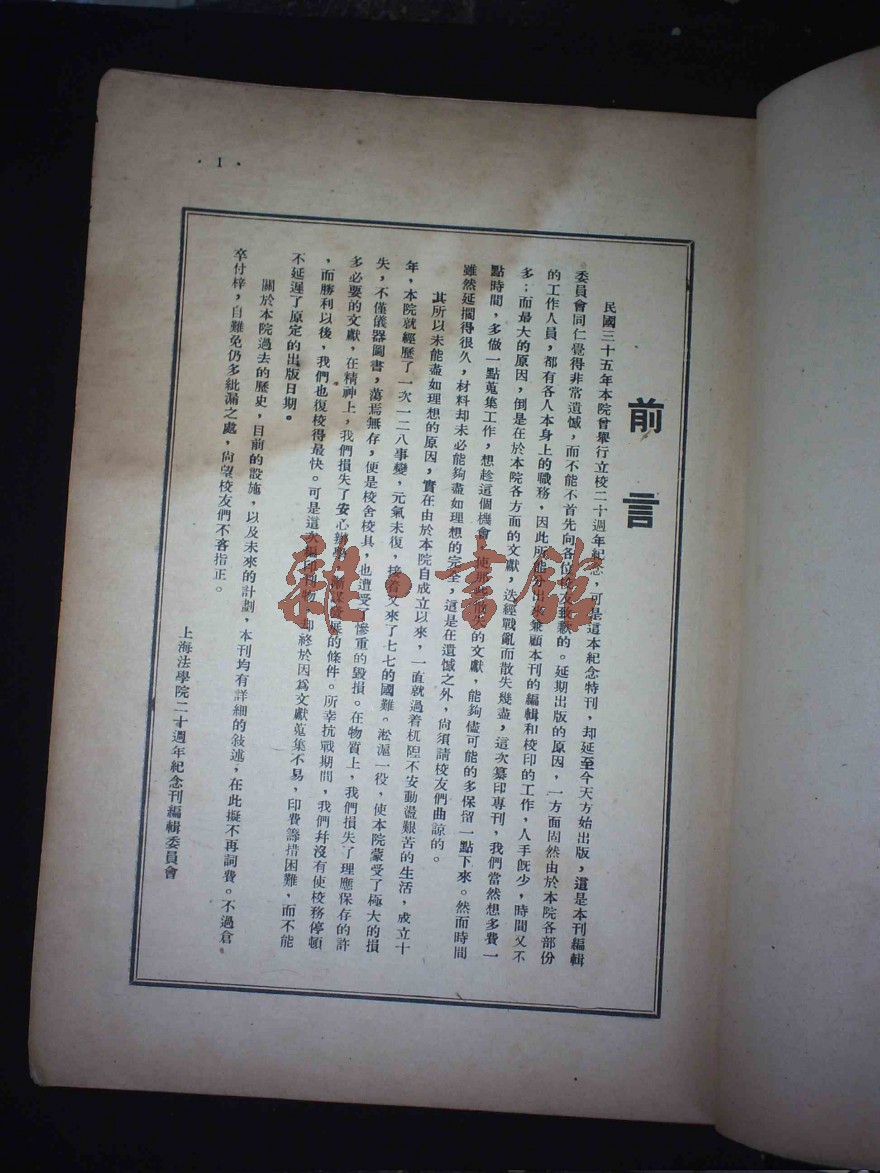 ·1·
前言
民國三十五年本院曾舉行立校二十週年紀念，可是這本紀念特刊，却延至今天方始出版，這是本刊編輯
委員會同仁覺得非常遺憾，而不能不首先向各位校友致歉的。延期出版的原因，一方面固然由於本院各部份
的工作人員，都有各人本身上的職務，因此所能分出來兼顧本刊的編輯和校印的工作，人手旣少，時間又不
多；而最大的原因，倒是在於本院各方面的文獻，迭經戰亂而散失幾盡，這次纂印專刊，我們當然想多費一
點時間，多做一點蒐集工作，想趁這個機會，使那些散失的文獻，能夠儘可能的多保留一點下來。然而時間
雖然延擱得很久，材料却未必能夠盡如理想的完全，這是在遺憾之外，尙須請校友們曲諒的。
其所以未能盡如理想的原因，實在由於本院自成立以來，一直就過着杌隉不安動盪艱苦的生活，成立十
年，本院就經歷了一次一二八事變，元氣未復，接着又來了七七的國難。淞滬一役，使本院蒙受了極大的損
失，不僅儀器圖書，蕩焉無存，便是校舍校具，也遭受了慘重的毀損。在物質上，我們損失了理應保存的許
多必要的文獻，在精神上，我們損失了安心辦學，展的條件。所幸抗戰期間，我們幷沒有使校務停頓
，而勝利以後，我們也復校得最快。可是這次編印刊物，却終於因爲文獻蒐集不易，印費籌措困難，而不能
不延遲了原定的出版日期。
關於本院過去的歷史，目前的設施，以及未來的計劃，本刊均有詳細的敍述，在此擬不再詞費。不過倉
卒付梓，自難免仍多紕漏之處，尙望校友們不吝指正。
上海法學院二十週年紀念刊編輯委員會
雜·書館